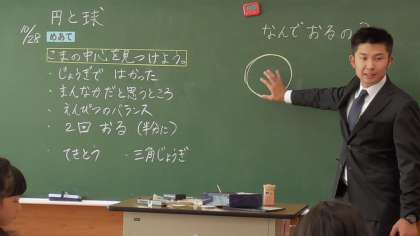 円と球
10/28
めあて
こまの中心を見つけよう。
・じょうぎで はかった
・まんなかだと思うところ
・えんぴつのバランス
・2回 おる (半分に)
てきとう ・三角じょうぎ
なんで おるの?